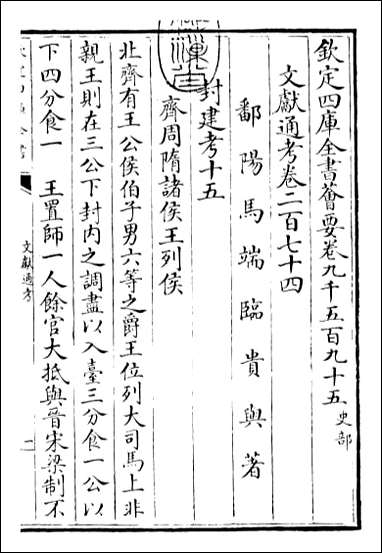 欽定四庫全書薈要卷九千五百九十五 史部
文獻通考卷二百七十四
鄱陽馬端臨貴與著
封建考十五
齊周隋諸侯王列侯
北齊有王公侯伯子男六等之爵王位列大司馬上非
親王則在三公下封内之調盡以入臺三分食一公以
下四分食一 王置師一人餘官大抵與晉宋梁制不
文獻通考
一